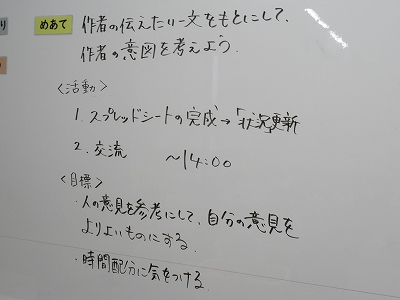 り
めあて 作者の伝えたい文をもとにして、
作者の意図を考えよう.
〈活動〉
1. スプレッドシートの完成→「状況」更新
2. 交流 ~14:00
〈目標〉
・人の意見を参考にして、自分の意見を
よりよいものにする.
・時間配分に気をつける.